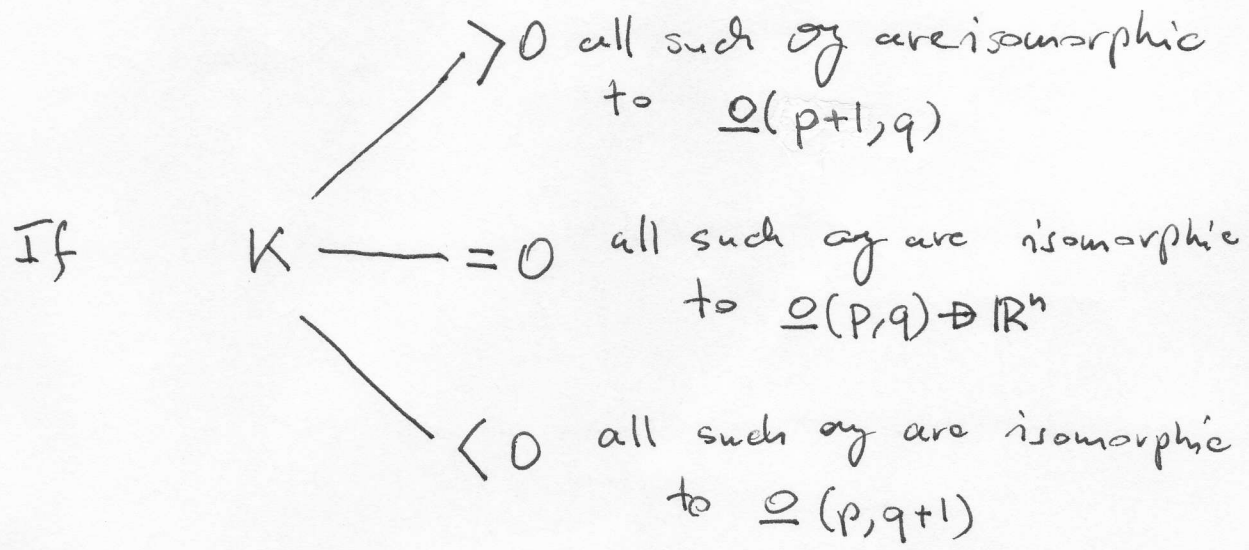 > 0 all such 𝔤 are isomorphic
to o̲(p+1,q)
If K = 0 all such 𝔤 are isomorphic
to o̲(p,q) ⊕ ℝⁿ
< 0 all such 𝔤 are isomorphic
to o̲(p,q+1)